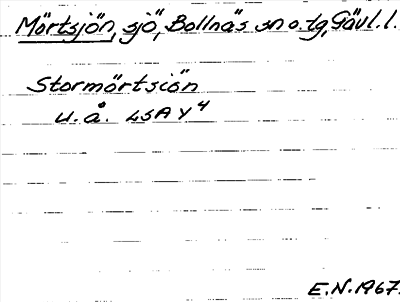 Mörtsjön, sjö, Bollnäs sn o. tg, Gävl. l.
Stormörtsiön
u. å. LSA Y4
E.N. 1967.